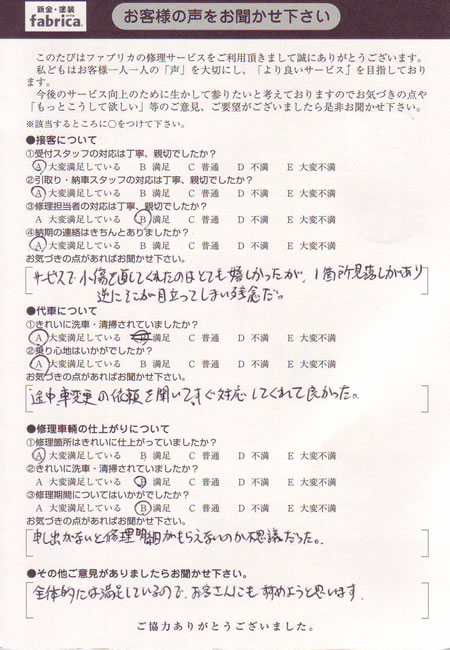 鈑金・塗装
fabrica.
お客様の声をお聞かせ下さい
このたびはファブリカの修理サービスをご利用頂きまして誠にありがとうございます。
私どもはお客様一人一人の「声」を大切にし、「より良いサービス」を目指しており
ます。
今後のサービス向上のために生かして参りたいと考えておりますのでお気づきの点や
「もっとこうして欲しい」等のご意見、ご要望がございましたら是非お聞かせ下さい。
※該当するところに○をつけて下さい。
●接客について
①受付スタッフの対応は丁寧、親切でしたか?
A 大変満足している B 満足 C 普通 D 不満 E 大変不満
②引取り・納車スタッフの対応は丁寧、親切でしたか?
A 大変満足している B 満足 C 普通 D 不満 E 大変不満
③修理担当者の対応は丁寧、親切でしたか?
A 大変満足している B 満足 C 普通 D 不満 E 大変不満
④納期の連絡はきちんとありましたか?
A 大変満足している B 満足 C 普通 D 不満 E 大変不満
お気づきの点があればお聞かせ下さい。
サービスで小傷を直してくれたのはとても嬉しかったが、1箇所見落しがあり
逆にそこが目立ってしまい残念だ。
●代車について
①きれいに洗車・清掃されていましたか?
A 大変満足している B 満足 C 普通 D 不満 E 大変不満
②乗り心地はいかがでしたか?
A 大変満足している B 満足 C 普通 D 不満 E 大変不満
お気づきの点があればお聞かせ下さい。
途中車変更の依頼を聞いてすぐ対応してくれて良かった。
●修理車輌の仕上がりについて
①修理箇所はきれいに仕上がっていましたか?
A 大変満足している B 満足 C 普通 D 不満 E 大変不満
②きれいに洗車・清掃されていましたか?
A 大変満足している B 満足 C 普通 D 不満 E 大変不満
③修理期間についてはいかがでしたか?
A 大変満足している B 満足 C 普通 D 不満 E 大変不満
お気づきの点があればお聞かせ下さい。
申し出がないと修理明細がもらえないのが不思議だった。
●その他ご意見がありましたらお聞かせ下さい。
全体的には満足しているので、お客さんにも薦めようと思います.
ご協力ありがとうございました。